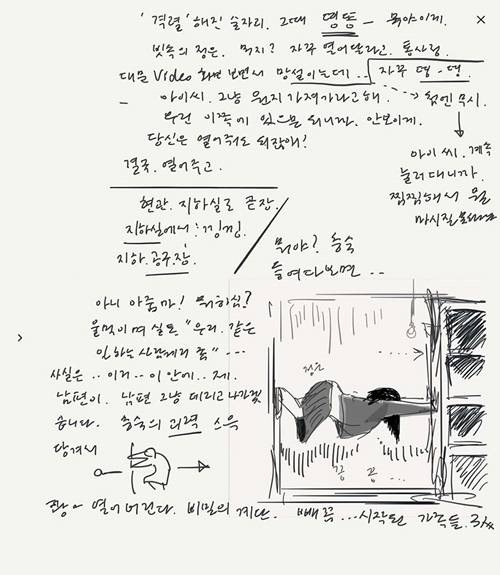 '격렬' 해진 술자리. 그때 띵똥 ― 뭐야 이게.
빗속의 정은. 뭐지? 자꾸 열어달라고. 통사정.
대문 Video 화면 보면서 망설이는데.. 자꾸 띵-띵.
아이씨. 그냥 뭔지 가져가라고 해. 첨엔 무시.
우선 이쪽에 있으면 되니까. 안보이게.
당신은 열어줘도 되잖애?
결국. 열어주고.
아이 씨. 계속
눌러대니까.
찜찜해서 뭘
마시질
현관. 지하실로 곧장.
지하실에서! 낑낑.
지하. 공구장.
뭐야? 충숙
들여다보면 ..
아니 아줌마! 뭐하심?
울먹이며 실토 "우리. 같은
일하는 사람끼리 좀" ---
사실은 .. 이거.. 이 안에.. 제.
남편이. 남편 그냥 데리고 나가겠
습니다. 충숙의 괴력 스윽
당겨서
정은
끙 끙
쾅~ 열어버린다. 비밀의 계단. 빼꼭 ...시작된 가족들.